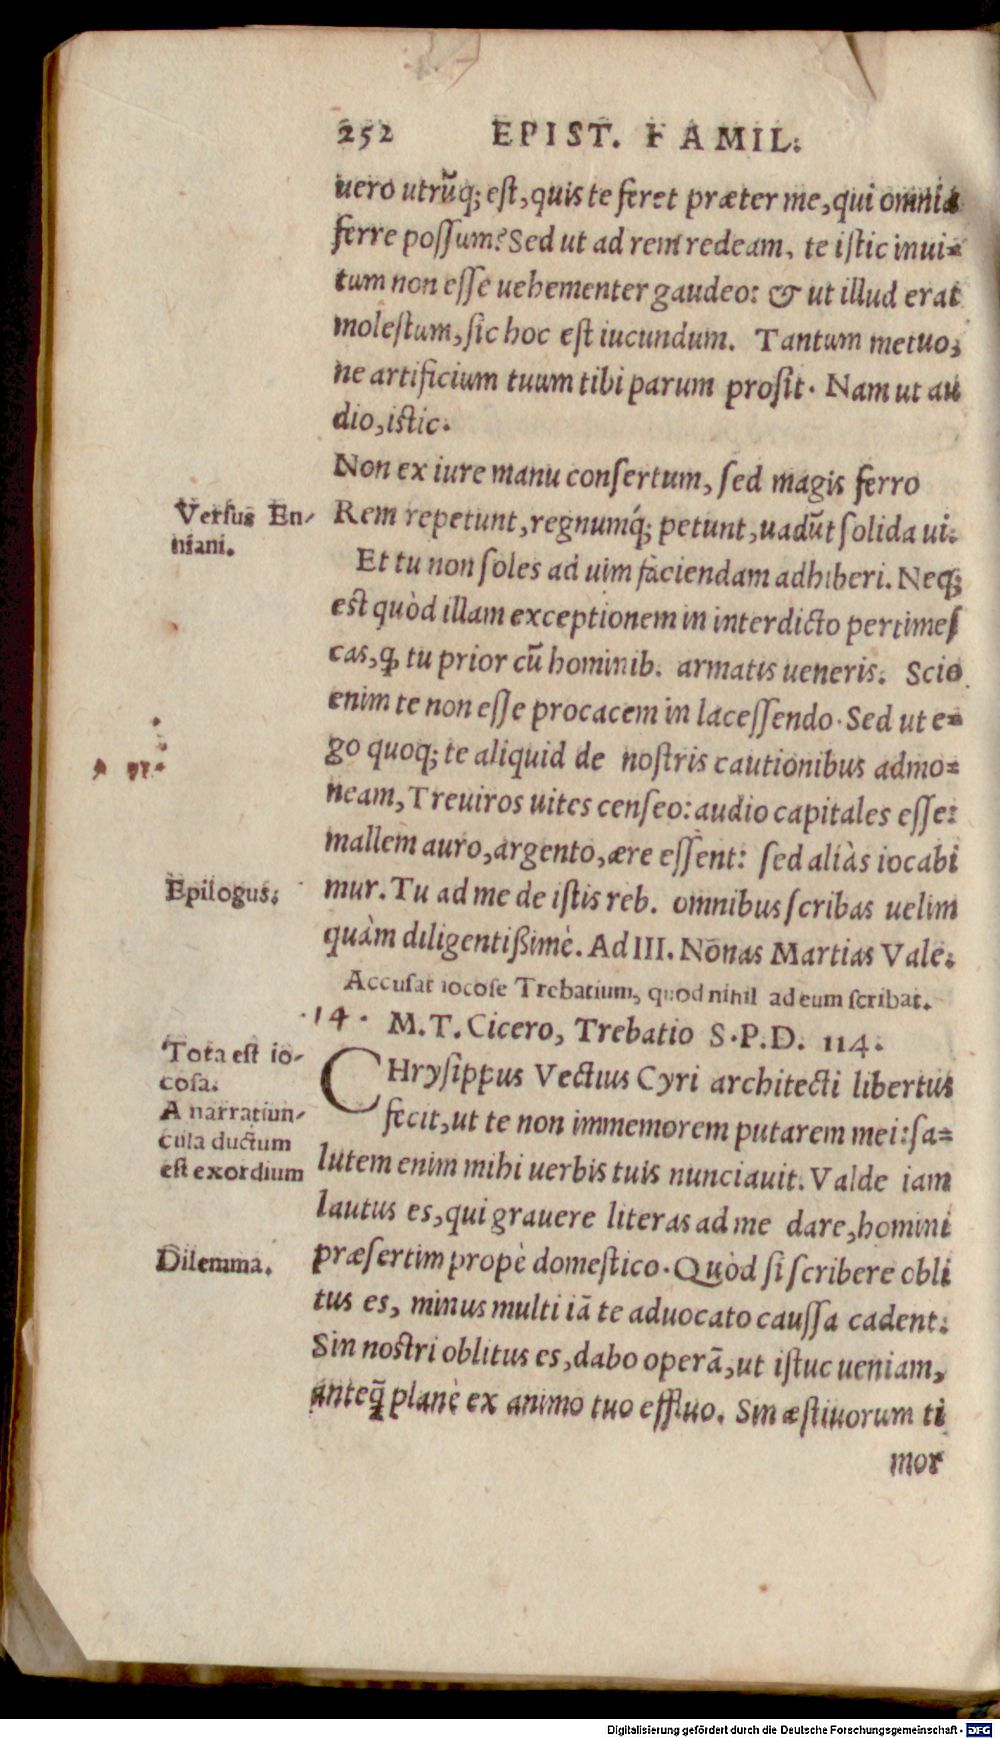 252 EPIST. FAMIL.
uero utrũq; est, quis te feret præter me, qui omnia
ferre possum? Sed ut ad rem redeam, te istic inui=
tum non esse uehementer gaudeo: & ut illud erat
molestum, sic hoc est iucundum. Tantum metuo,
ne artificium tuum tibi parum prosit. Nam ut au
dio, istic.
Non ex iure manu consertum, sed magis ferro
Versus En-
niani.
Rem repetunt, regnumq́; petunt, uadũt solida ui.
Et tu non soles ad uim faciendam adhiberi. Neq;
est quòd illam exceptionem in interdicto pertimes
cas, ꝙ tu prior cũ hominib. armatis ueneris. Scio
enim te non esse procacem in lacessendo. Sed ut e=
go quoq; te aliquid de nostris cautionibus admo=
neam, Treuiros uites censeo: audio capitales esse:
mallem auro, argento, ære essent: sed aliàs iocabi
Epilogus.
mur. Tu ad me de istis reb. omnibus scribas uelim
quàm diligentißimè. Ad III. Nonas Martias Vale.
Accusat iocose Trebatium, quod nihil ad eum scribat.
.14. M. T. Cicero, Trebatio S.P.D. 114.
Tota est io-
cosa.
A narratiun-
cula ductum
est exordium
CHrysippus Vectius Cyri architecti libertus
fecit, ut te non immemorem putarem mei: sa=
lutem enim mihi uerbis tuis nunciauit. Valde iam
lautus es, qui grauere literas ad me dare, homini
Dilemma.
præsertim propè domestico. Quòd si scribere obli
tus es, minus multi iã te aduocato caussa cadent.
Sin nostri oblitus es, dabo operã, ut istuc ueniam,
anteq̃ planè ex animo tuo effluo. Sin æstiuorum ti
mor
Digitalisierung gefördert durch die Deutsche Forschungsgemeinschaft - DFG